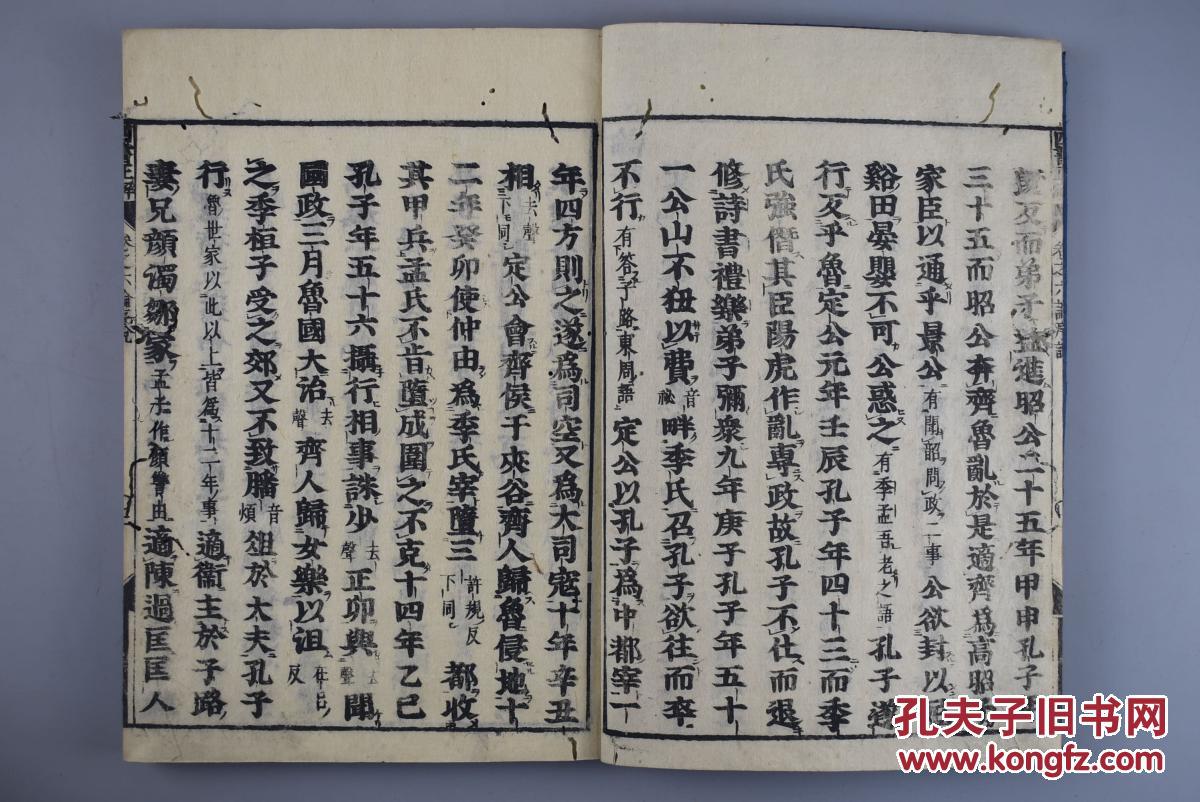 既反而弟子益進昭公二十五年甲申孔子年
三十五而昭公奔齊魯亂於是適齊爲高昭子
家臣以通乎景公有聞韶問政二事公欲封以尼
谿田晏嬰不可公惑之有季孟吾老之語孔子遂
行反乎魯定公元年壬辰孔子年四十三而季
氏強僭其臣陽虎作亂專政故孔子不仕而退
修詩書禮樂弟子彌衆九年庚子孔子年五十
一公山不狃以費音祕畔季氏召孔子欲往而卒
不行有答子路東周語定公以孔子爲中都宰一
年四方則之遂爲司空又爲大司寇十年辛丑
相去聲下同定公會齊侯于夾谷齊人歸魯侵地十
二年癸卯使仲由爲季氏宰墮三許規反下同都收
其甲兵孟氏不肯墮成圍之不克十四年乙巳
孔子年五十六攝行相事誅少去聲正卯與聲聞
國政三月魯國大治去聲齊人歸女樂以沮在呂反
之季桓子受之郊又不致膰音煩俎於大夫孔子
行魯世家以此以上皆爲十二年事適衞主於子路
妻兄顏濁鄒家孟子作顏讐由適陳過匡匡人
卷之六
孔夫子旧书网
www.kongfz.com